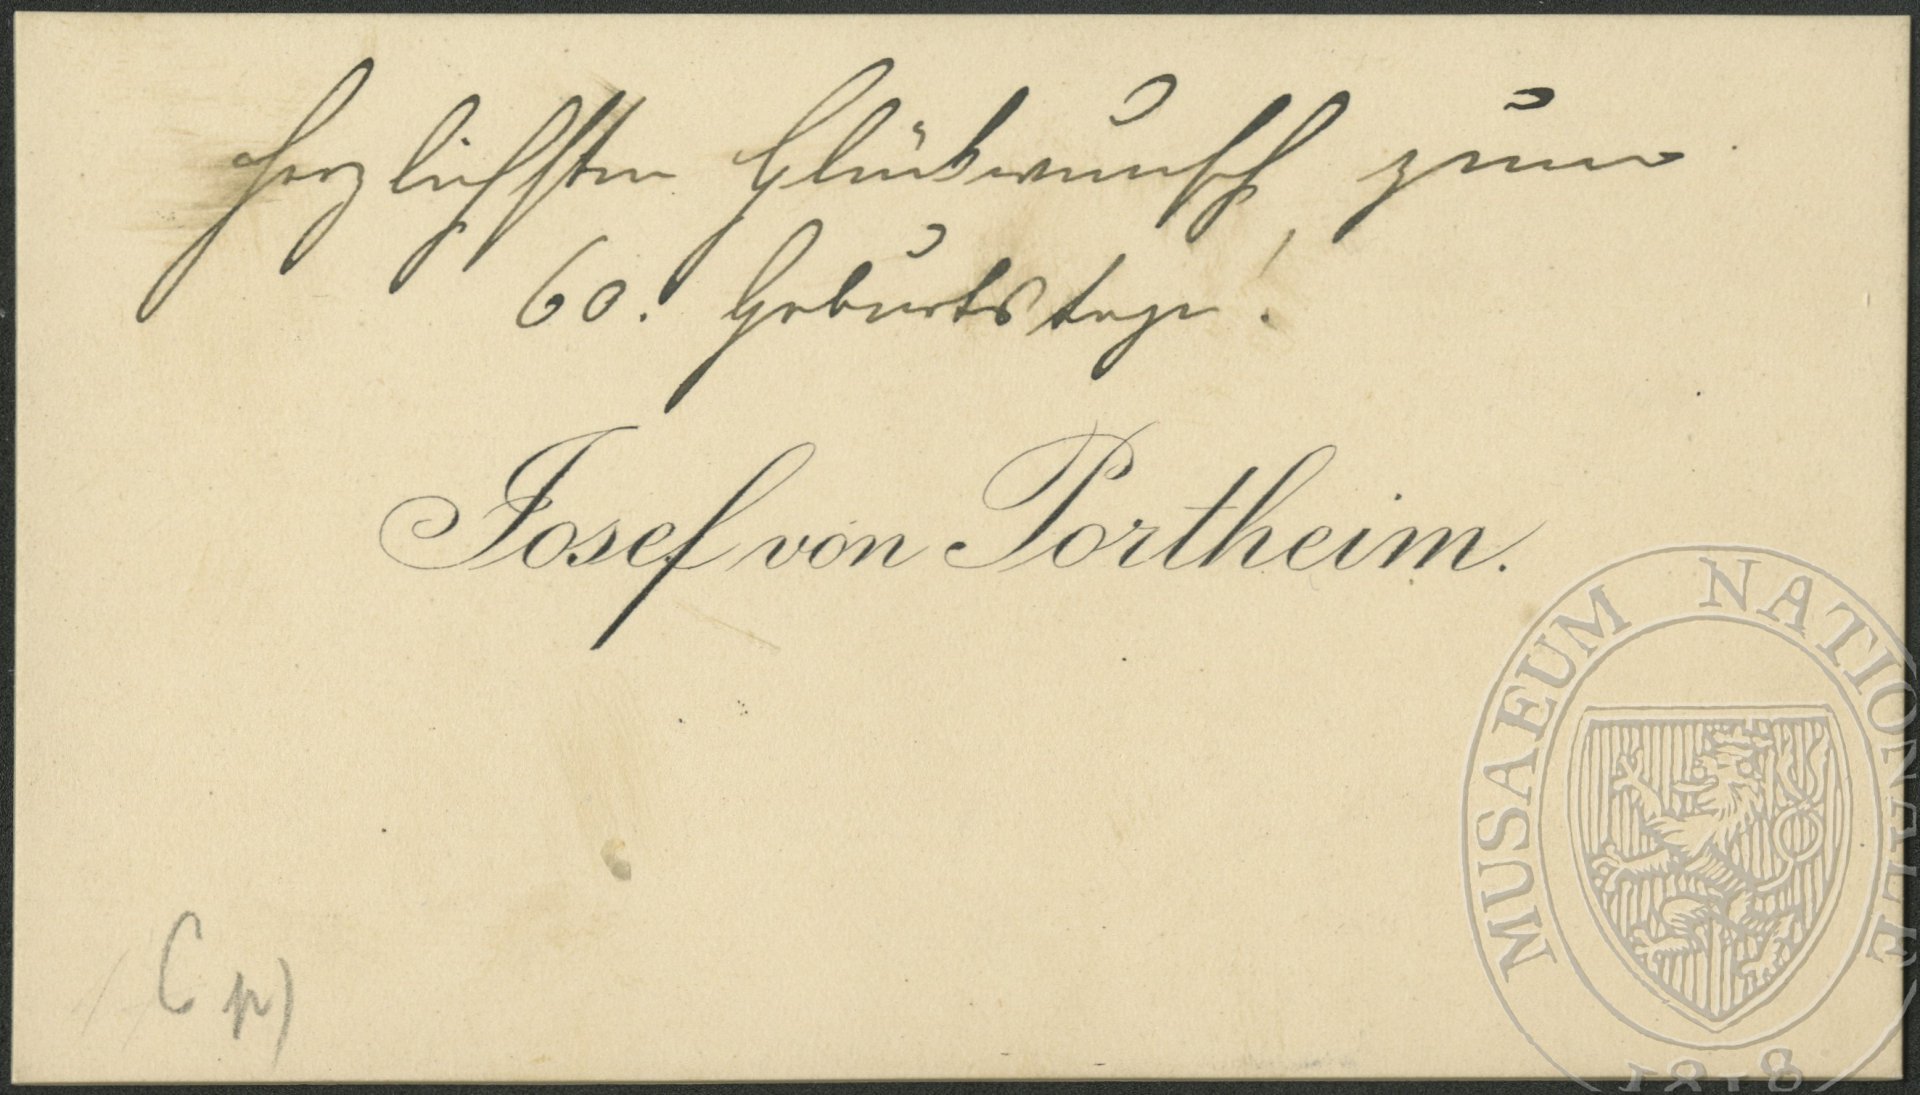 herzlichsten Glückwunsch zum
60. Geburtstage!
Josef von Portheim.
C p)
MUSAEUM NATIONALE
1818